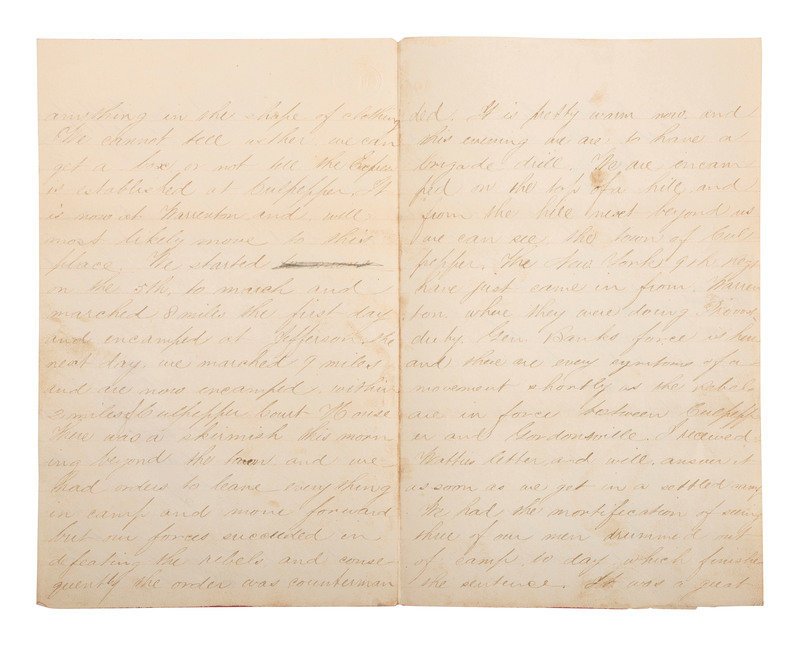 anything in the shape of clothing
We cannot tell wether we can
get a box or not till the Express
is established at Culpepper. It
is now at Warrenton and will
most likely move to this
place. We started
on the 5th, to march and
marched 8 miles the first day
and encamped at Jefferson, the
next day, we marched 9 miles
and are now encamped within
3 miles of Culpepper Court House
There was a skirmish this morn
ing beyond the town and we
had orders to leave everything
in camp and move forward
but our forces succeeded in
defeating the rebels and conse
quently the order was counterman
ded. It is pretty warm now and
this evening we are to have a
brigade drill. We are encam
ped on the top of a hill and
from the hill next beyond us
we can see, the town of Cul
pepper. The New York 9th
have just came in from Warren
ton where they were doing Provost
duty. Gen. Banks force is here
and there are every symtoms of a
movement shortly as the Rebels
are in force between Culpepp
er and Gordonsville. I received
Hatties letter, and will answer it
as soon as we get in a settled camp
We had the mortification of seeing
three of our men drummed out
of camp to day which finishes
the sentence. It was a great